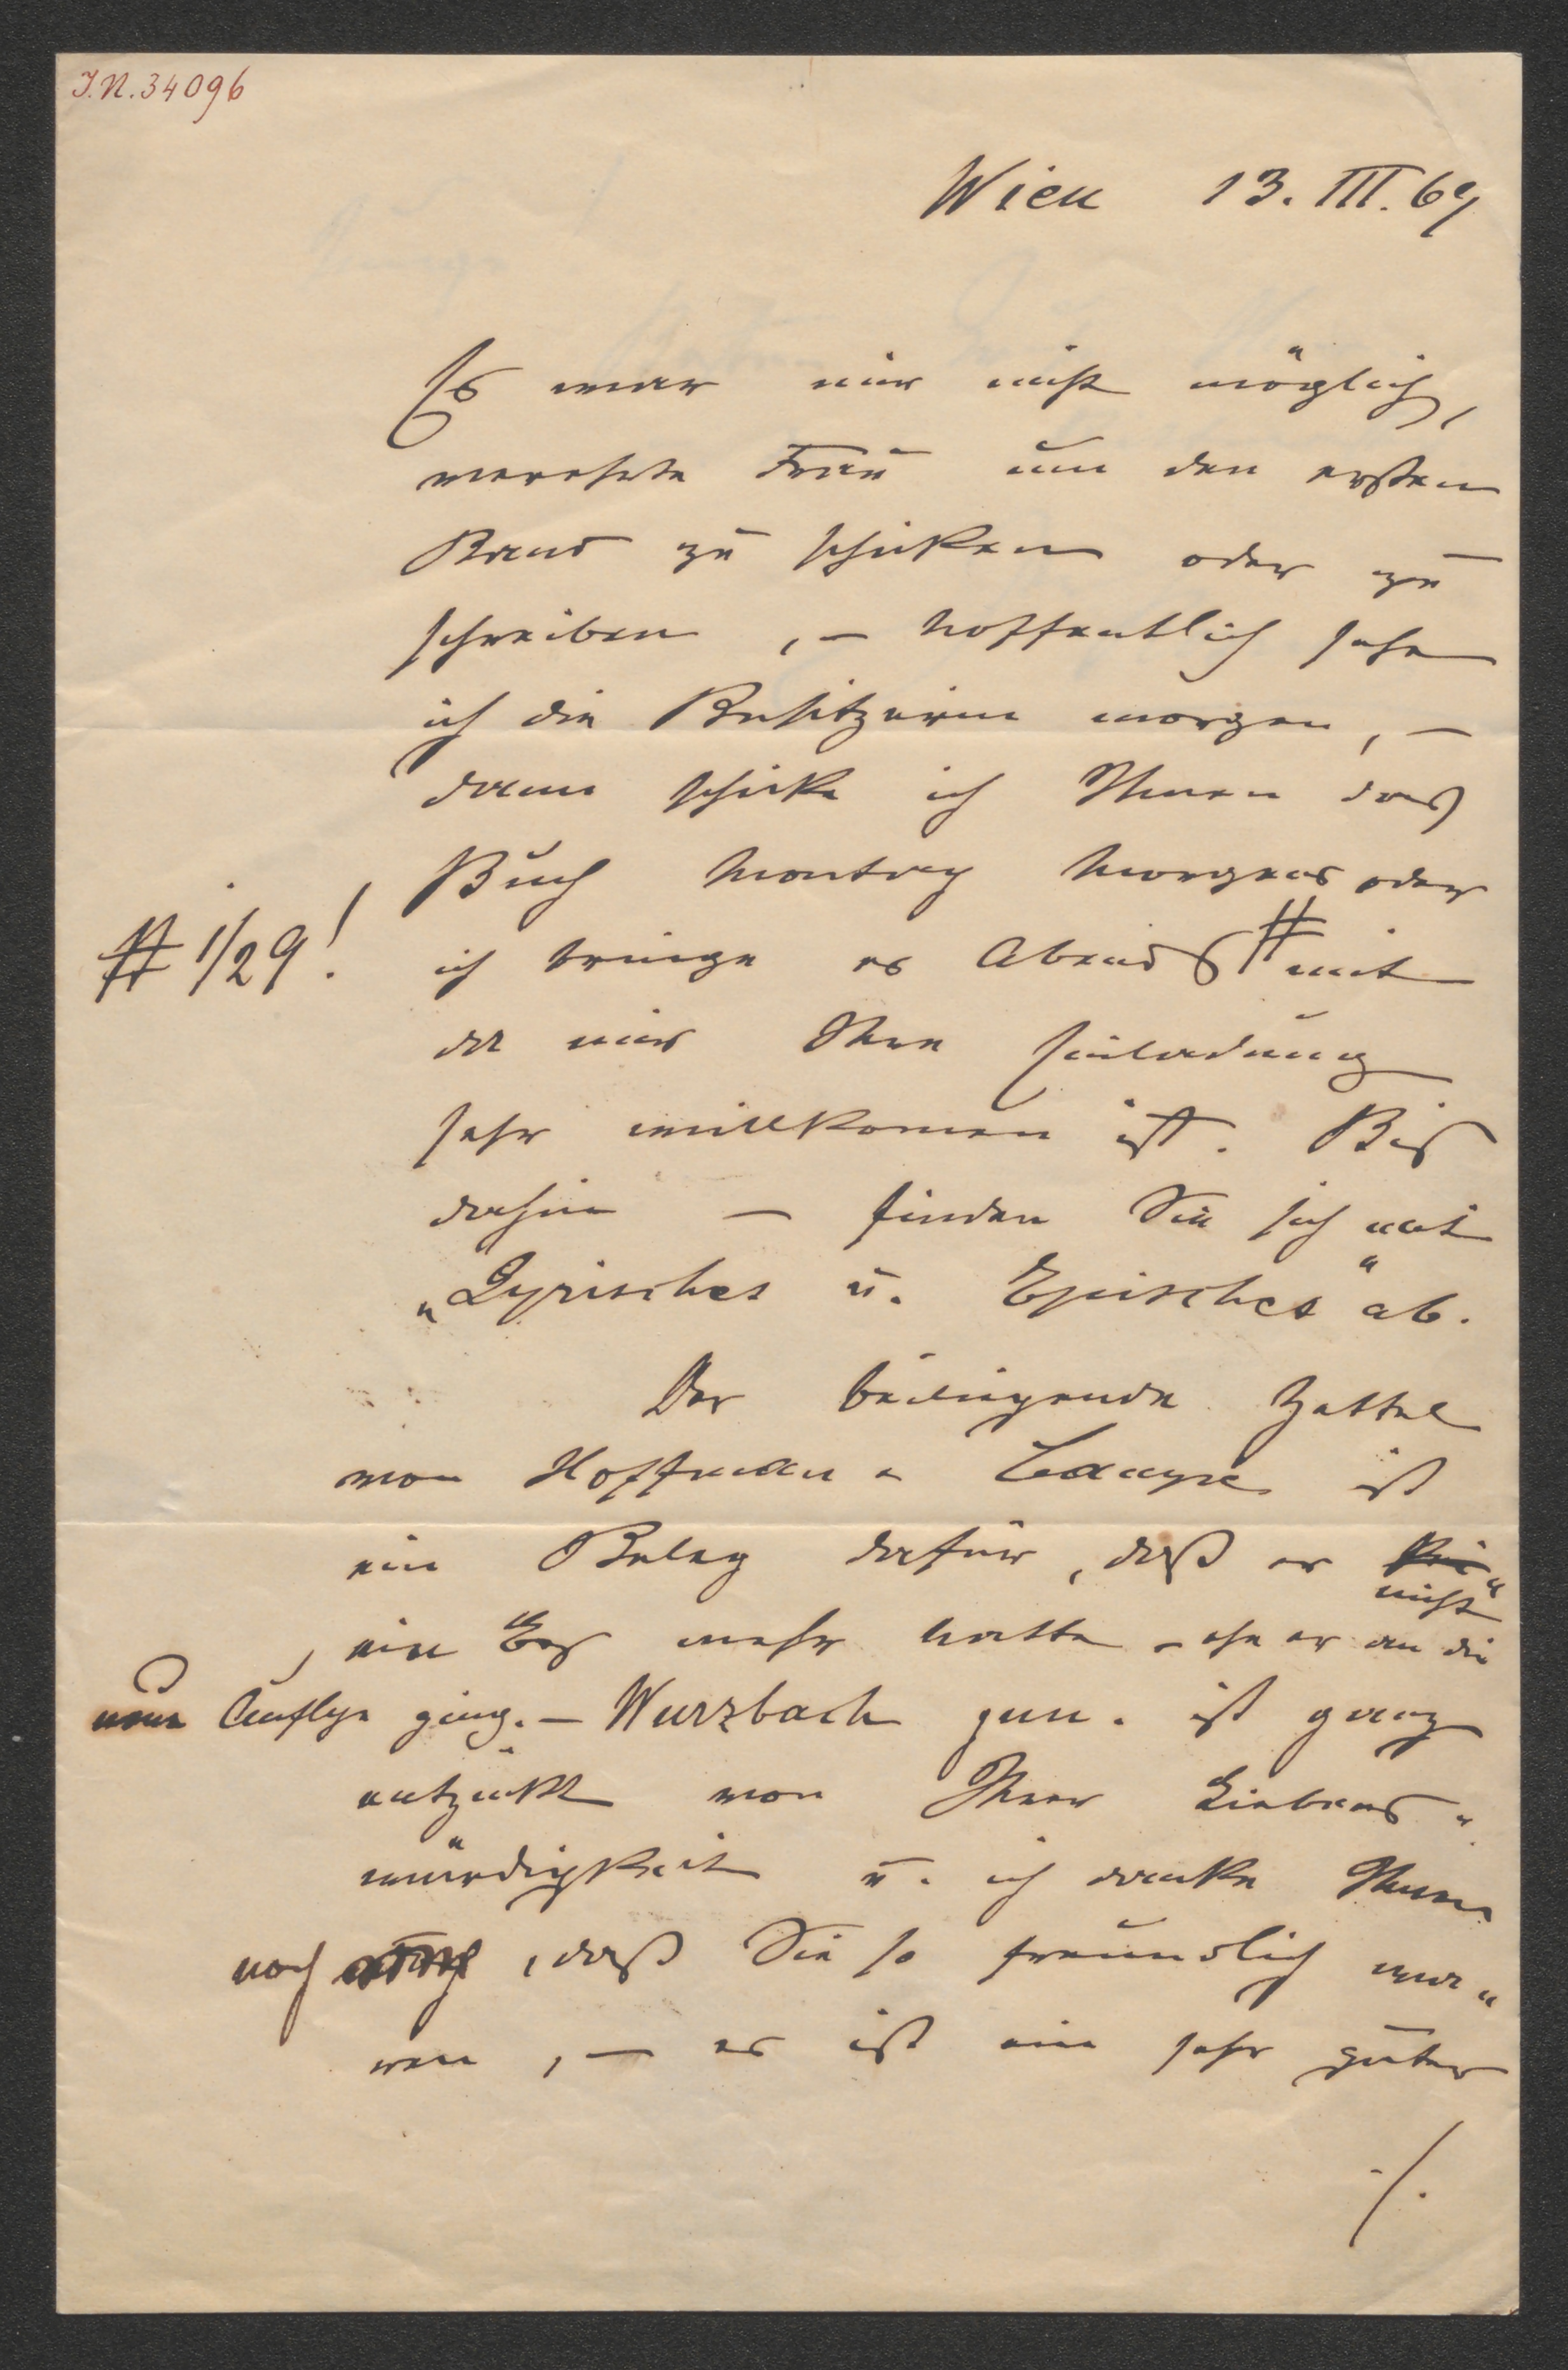 I.N. 34096
Wien 13. III. 69
Es war mir nicht möglich,
verehrte Frau um den ersten
Band zu schicken oder zu
schreiben, – hoffentlich sehe
ich die Besitzerin morgen, –
dann schicke ich Ihnen das
Buch Montag Morgens oder
ich bringe es Abends # mit
# 1/29!
da mir Ihre Einladung
sehr willkomen ist. Bis
dahin – finden Sie sich mit
„Lyrisches u. Epísches“ ab.
Der beiliegende Zettel
von Hoffman & Campe ist
ein Beleg dafür, daß er
nicht
ein Ex mehr hatte – ehe er an die
neue Auflge ging. – Wurzbach jun. ist ganz
entzückt von Ihrer Liebens„
würdigkeit u. ich danke Ihnen
noch, daß Sie so freundlich wa„
ren, – er ist ein sehr guter
./.